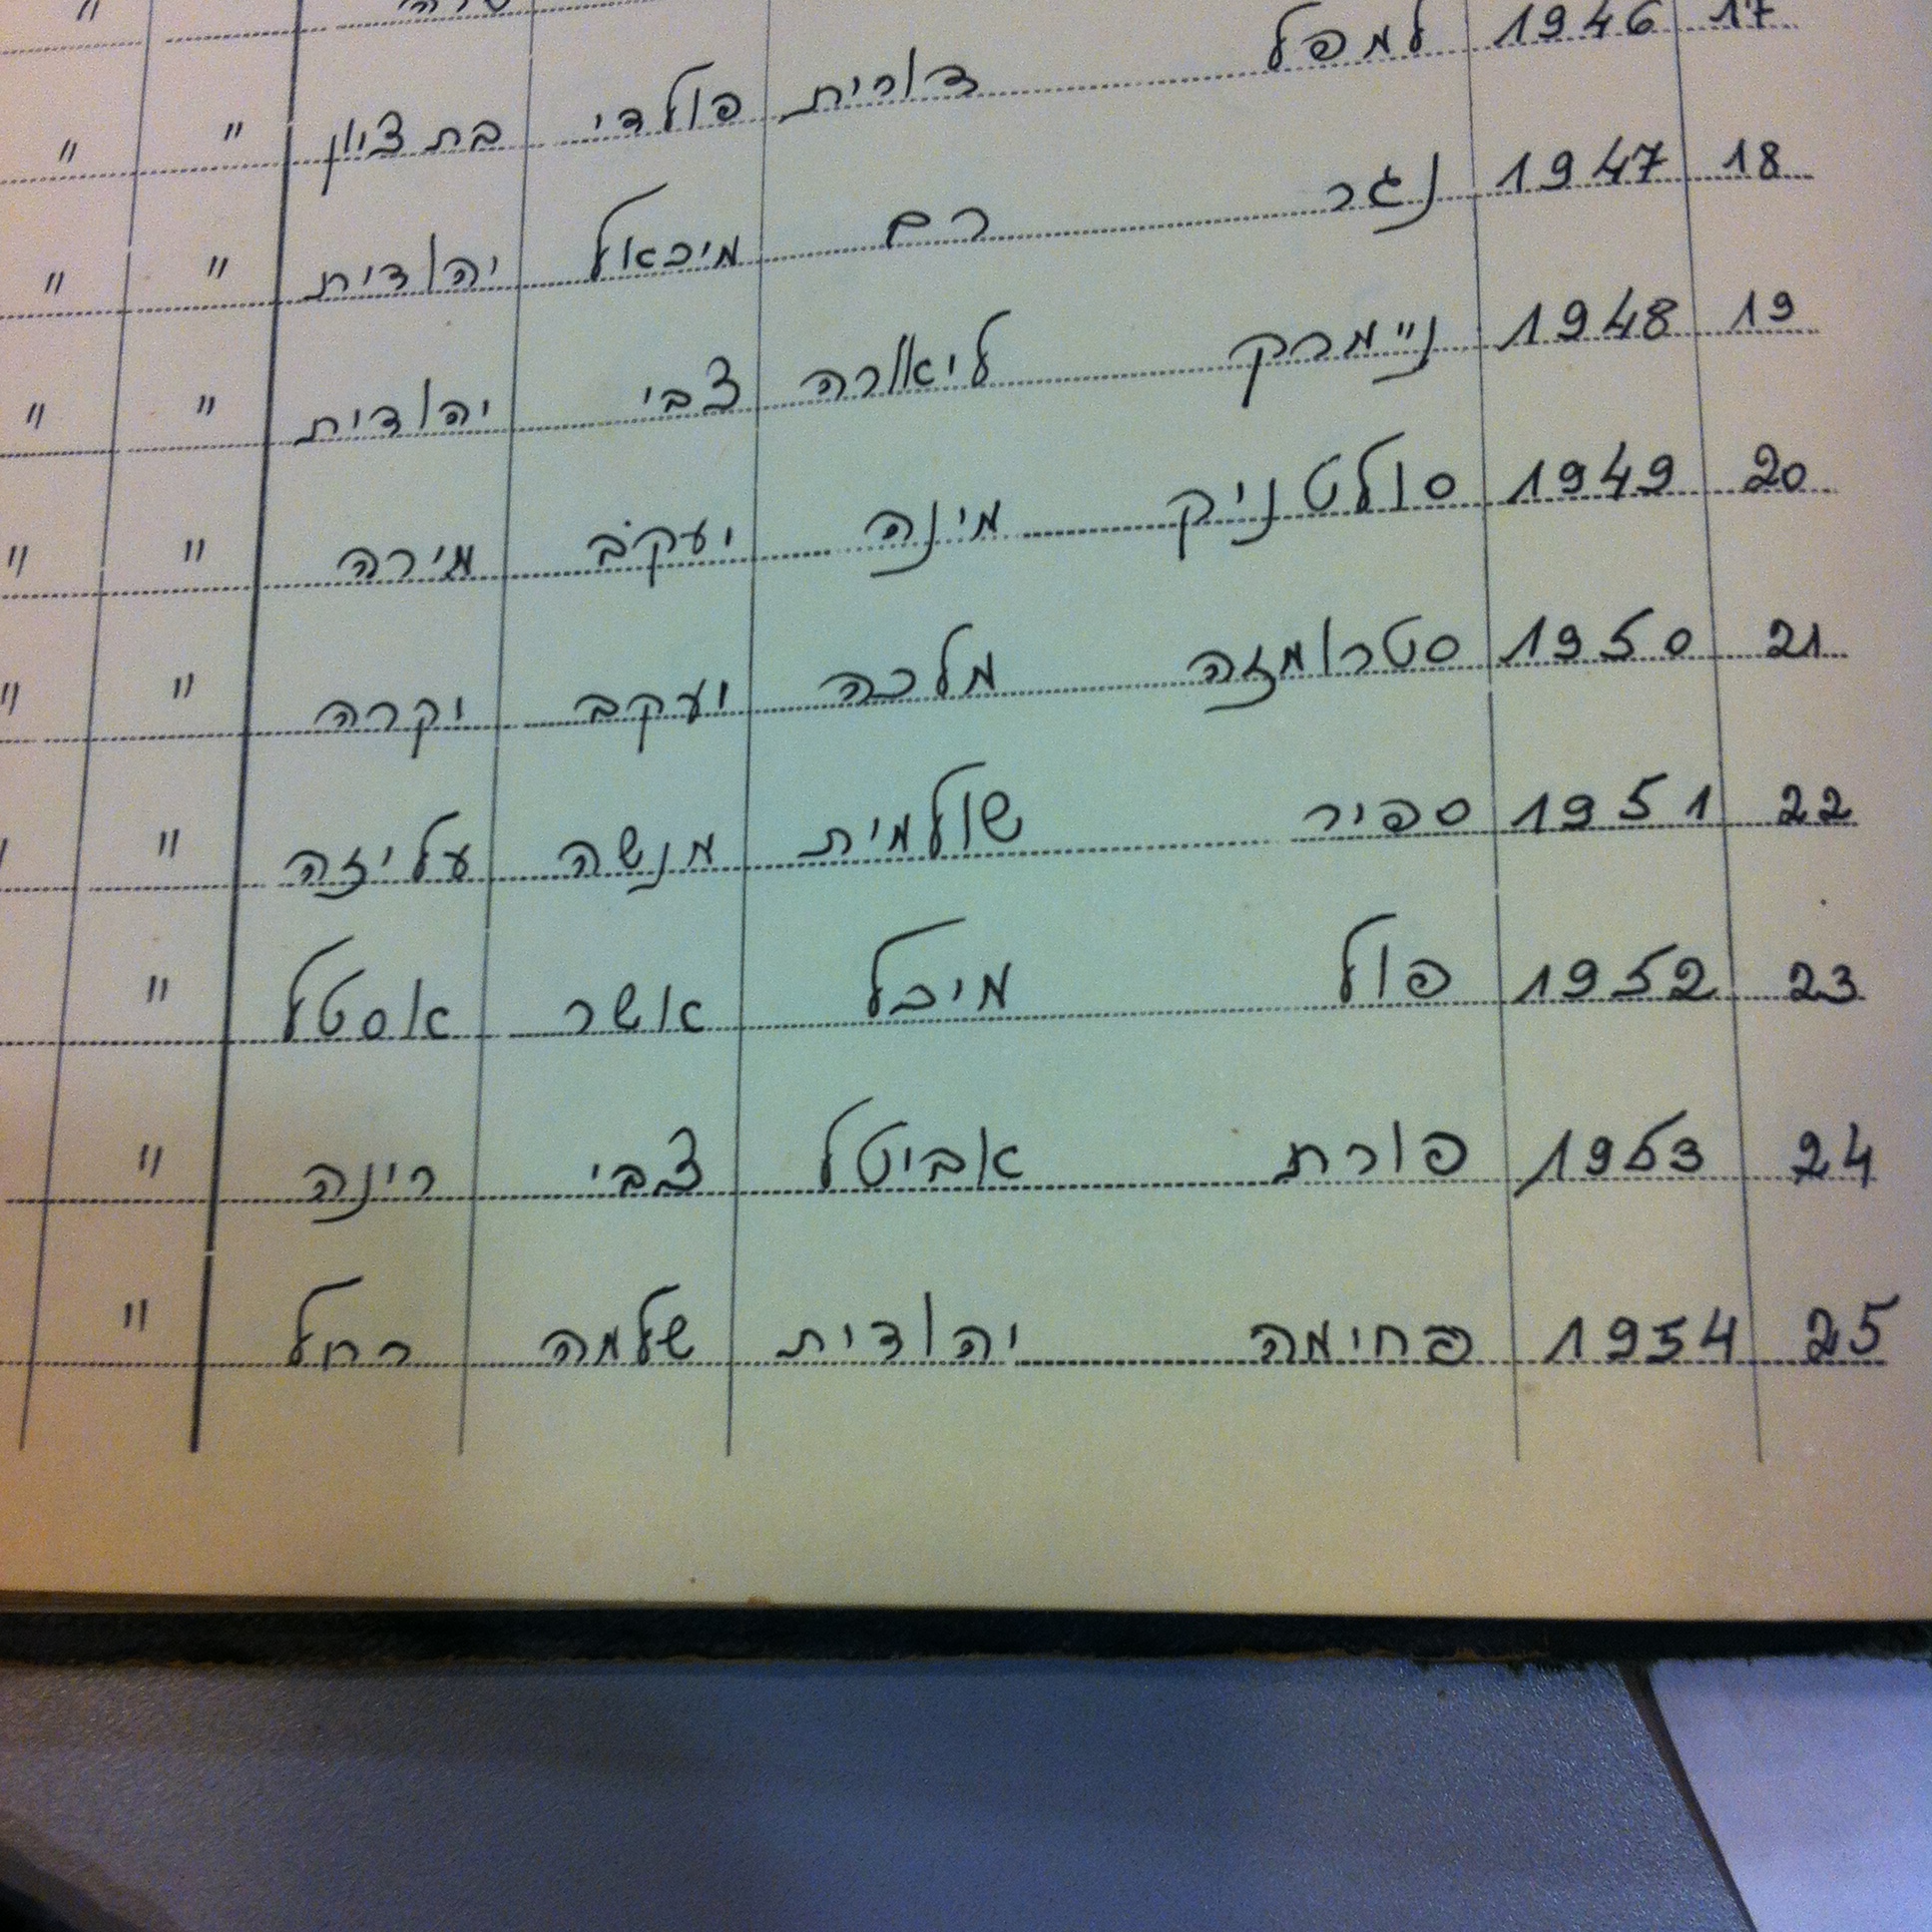 17 1946 למפל דורית פולדי בת ציון " "
18 1947 נגר רם מיכאל יהודית " "
19 1948 ניימרק ליאורה צבי יהודית " "
20 1949 סולטניק מינה יעקב מירה " "
21 1950 סטרומזה מלכה יעקב יקרה " "
22 1951 ספיר שולמית מנשה עליזה "
23 1952 פול מיכל אשר אסטל "
24 1953 פורת אביטל צבי רינה "
25 1954 פחימה יהודית שלמה רחל "